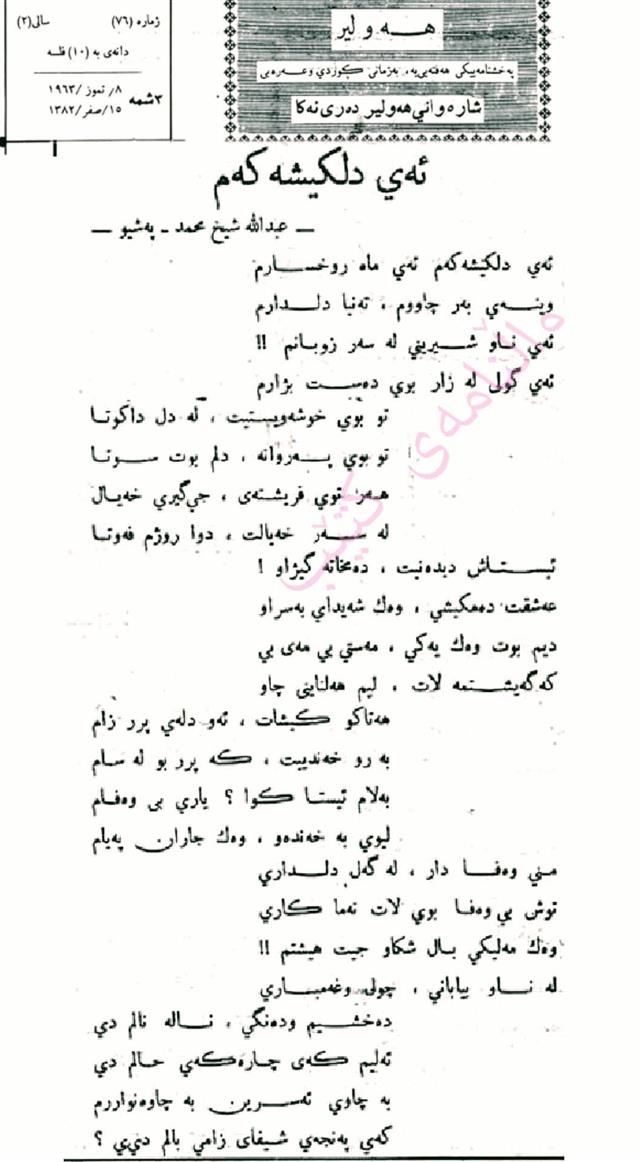 هەولێر
پەخشنامەییکی هەفتەیی یە، بەزمانی کوردی وعەرەبی
شارەوانی هەولیر دەری ئەکا
ژمارە (٧٦) سالی(٢)
دانەی بە (١٠) فلسە
٣شمە
٨/ تموز /١٩٦٣
١٥/صفر/١٣٨٢
ئەي دلکیشەکەم
— عبدالله شیخ محمد - پەشیو —
ئەي دلکیشەکەم ئەي ماە روخسارم
وینەي بەر چاووم ، تەنیا دلدارم
ئەي ناو شیریني لە سەر زوبانم !!
ئەي گولی لە زار بوي دەست بژارم
تو بوي خوشەویستیت ، لە دل داکوتا
تو بوي پەروانە ، دلم بوت سوتا
هەر توي فریشتەی ، جیگیري خەیال
لە سەر خەیالت ، دوا روژم فەوتا
ئیستاش دیدەنیت ، دەمخاتە گیژاو !
عەشقت دەمکیشي ، وەك شەیداي بەسراو
دیم بوت وەك یەکي ، مەستي بي مەی بي
کەگەیشتمە لات ، لیم هەلناینی چاو
هەتاکو کیشات ، ئەو دلەي پرر زام
بە رو خەندیبت ، کە پرر بو لە سام
بەلام ئیستا کوا ؟ یاري بی وەفام
لیوي بە خەندەو ، وەك جاران پەیام
مني وەفا دار ، لە گەل دلداري
توش بي وەفا بوي لات نەما کاري
وەك مەلیکي بال شکاو جیت هیشتم !!
لە ناو بیاباني ، چولی وغەمباري
دەخشیم ودەنگي ، نالە نالم دي
ئەلیم کەی چارەکەي حالم دي
بە چاوي ئەسرین بە چاوەنواررم
کەي پەنجەي شیفای زامي بالم دێي ؟
ماڵنامەی کتێب